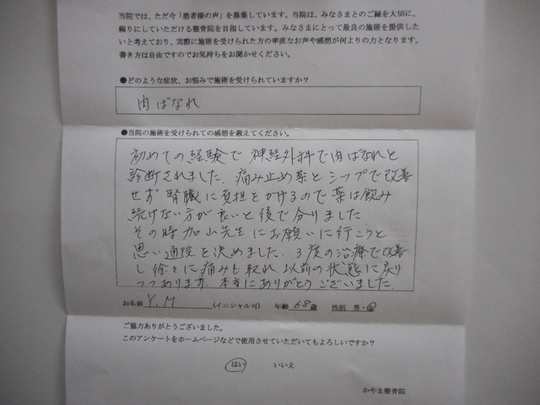 当院では、ただ今「患者様の声」を募集しています。当院は、みなさまとのご縁を大切に、
頼りにしていただける整骨院を目指しています。みなさまにとって最良の施術を提供した
いと考えており、実際に施術を受けられた方の率直なお声や感想が何よりの力となります。
書き方は自由ですのでお気持ちをお聞かせください。
●どのような症状、お悩みで施術を受けられていますか?
肉ばなれ
●当院の施術を受けられての感想を教えてください。
初めての経験で神経外科で肉ばなれと
診断されました。痛み止め薬とシップで改善
せず腎臓に負担をかけるので薬は飲み
続けない方が良いと後で分りました
その時加山先生にお願いに行こうと
思い通院を決めました。3度の治療で改善
し徐々に痛みも取れ以前の状態に戻り
つつあります。本当にありがとうございました。
お名前 Y.M (イニシャル可) 年齢 68歳 性別 男・女
ご協力ありがとうございました。
このアンケートをホームページなどで使用させていただいてもよろしいですか?
はい いいえ
かやま整骨院